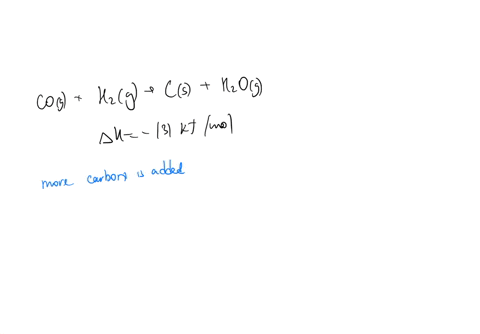 CO(g) + H₂(g) → C(s) + H₂O(g)
ΔH = -131 kJ/mol
more carbon is added